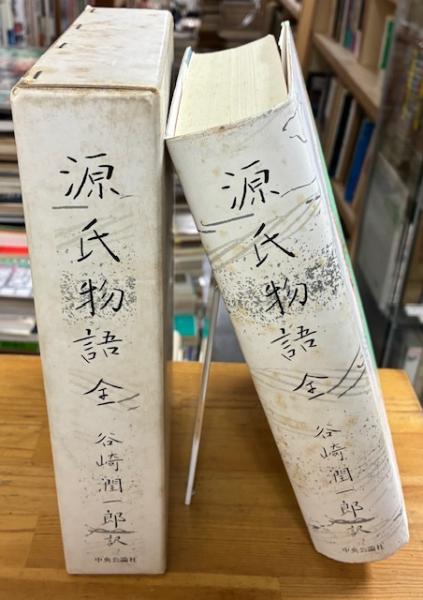 源氏物語 全
谷崎潤一郎訳
源氏物語 全
谷崎潤一郎訳
中央公論社